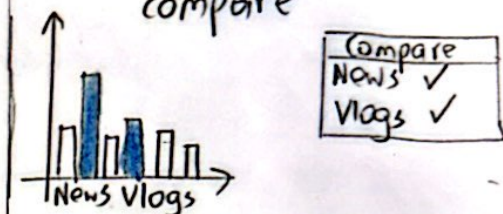 compare
News Vlogs
Compare
News ✓
Vlogs ✓